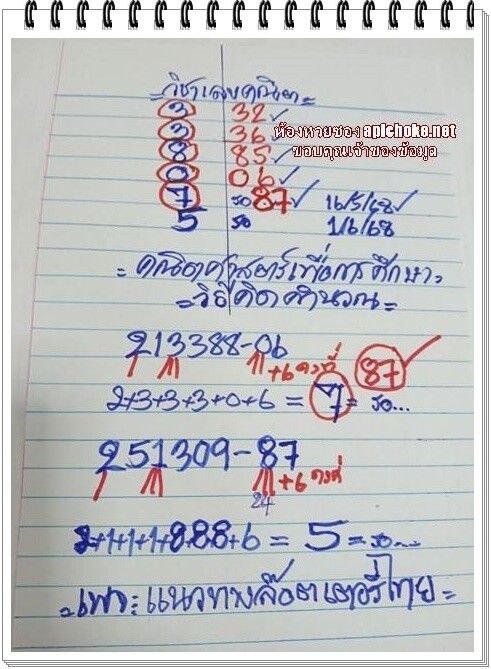 = วิชาเลขคณิต =
3 32 ✓
3 36 ✓
ห้องหวยซอง apichoke.net
8 85 ✓
ขอบคุณเจ้าของข้อมูล
0 06 ✓
7 รอ 87 ✓ 16/5/68 ✓
5 รอ 1/6/68
= คณิตศาสตร์เพื่อการศึกษา =
= วิธีคิดคำนวณ =
213388-06
+6 คงที่ 87 ✓
2+3+3+3+0+6 = 7 = รอ...
251309-87
+6 คงที่
24
= รอ...
= 5
= เพจ: แนวทางล๊อตเตอรี่ไทย =